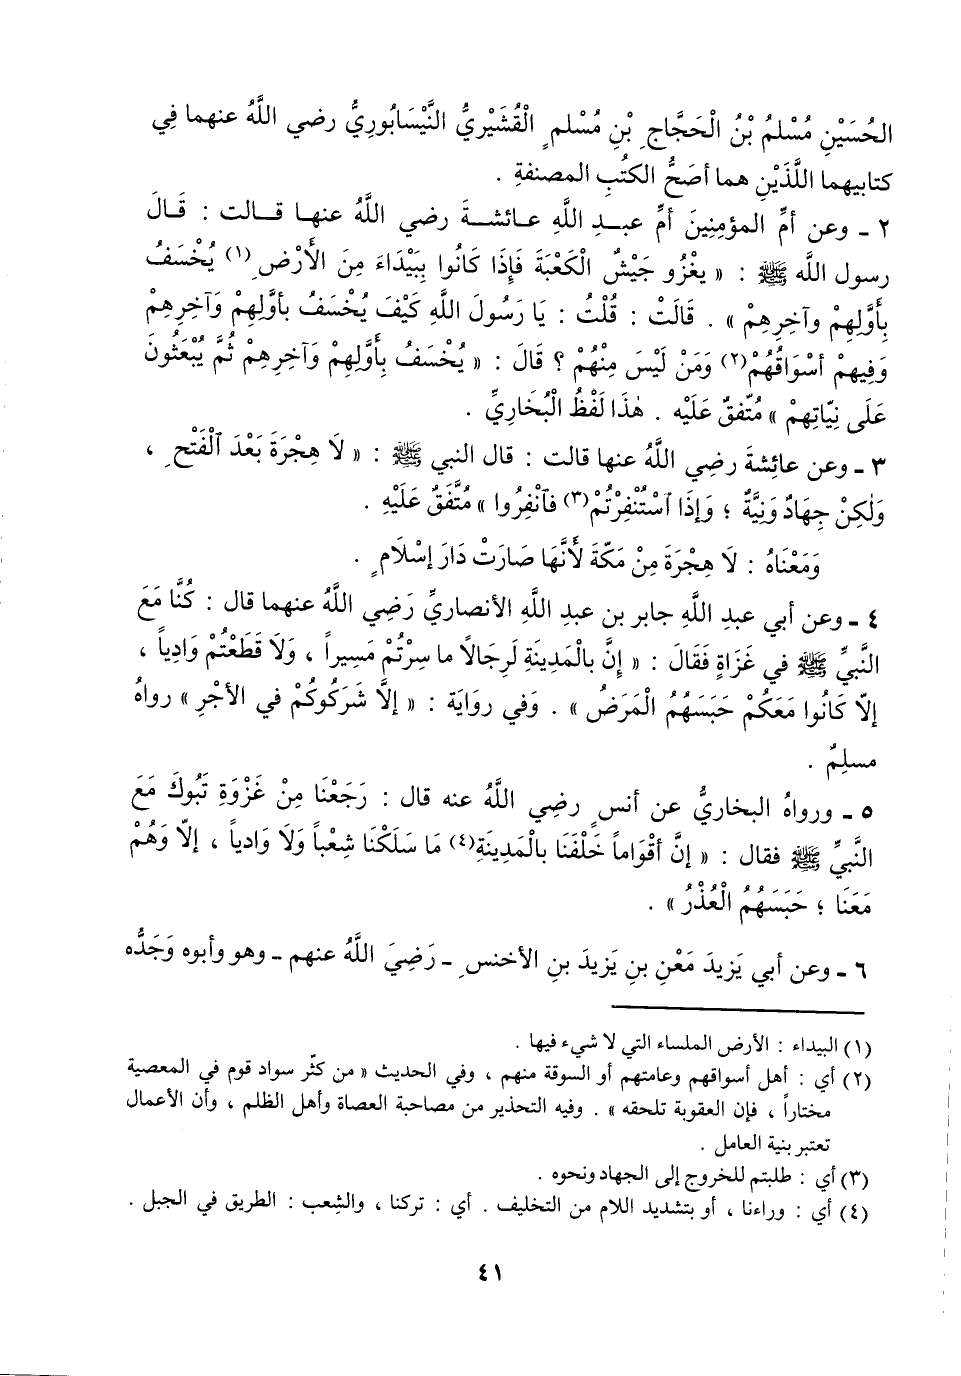 الحُسَيْنِ مُسْلمُ بْنُ الْحَجَّاجِ بْنِ مُسْلمٍ الْقُشَيْرِيُّ النَّيْسَابُورِيُّ رضي اللَّهُ عنهما فِي
كتابيهما اللَّذَيْنِ هما أصَحُّ الكتُبِ المصنفةِ .
٢ ـ وعن أمِّ المؤمِنِينَ أمِّ عبدِ اللَّهِ عائشةَ رضي اللَّهُ عنها قالت : قَالَ
رسول اللَّه ﷺ : « يغْزُو جَيْشُ الْكَعْبَةَ فَإِذَا كَانُوا بِبَيْدَاءَ مِنَ الأَرْضِ(١) يُخْسَفُ
بِأَوَّلِهِمْ وآخِرِهِمْ » . قَالَتْ : قُلْتُ : يَا رَسُولَ اللَّهِ كَيْفَ يُخْسَفُ بأوَّلِهِمْ وَآخِرِهِمْ
وَفِيهِمْ أسْوَاقُهُمْ(٢) وَمَنْ لَيْسَ مِنْهُمْ ؟ قَالَ : « يُخْسَفُ بِأَوَّلِهِمْ وَآخِرِهِمْ ثُمَّ يُبْعَثُونَ
عَلَى نِيَّاتِهِمْ » مُتّفقٌ عَلَيْه . هٰذَا لَفْظُ الْبُخَارِيِّ .
٣ ـ وعن عائِشةَ رضِي اللَّهُ عنها قالت : قال النبي ﷺ : « لَا هِجْرَةَ بَعْدَ ٱلْفَتْحِ ،
وَلٰكِنْ جِهَادٌ وَنِيَّةٌ ؛ وَإِذَا ٱسْتُنْفِرْتُمْ(٣) فٱنْفِرُوا » مُتَّفَقٌ عَلَيْهِ .
وَمَعْنَاهُ : لَا هِجْرَةَ مِنْ مَكّةَ لأَنَّهَا صَارَتْ دَارَ إسْلَامٍ .
٤ ـ وعن أبي عبدِ اللَّهِ جابر بن عبدِ اللَّهِ الأنصاريِّ رَضِي اللَّهُ عنهما قال : كُنَّا مَعَ
النَّبيِّ ﷺ في غَزَاةٍ فَقَالَ : « إِنَّ بالْمَدِينَةِ لَرِجَالًا ما سِرْتُمْ مَسِيراً ، وَلَا قَطَعْتُمْ وَادِياً ،
إلّا كَانُوا مَعَكُمْ حَبَسَهُمُ الْمَرَضُ » . وَفي روَايَة : « إلَّا شَرَكُوكُمْ في الأجْرِ » رواهُ
مسلِمٌ .
٥ ـ ورواهُ البخاريُّ عن أنسٍ رضِي اللَّهُ عنه قال : رَجَعْنَا مِنْ غَزْوَةِ تَبُوكَ مَعَ
النَّبيِّ ﷺ فقال : « إنَّ أقْوَاماً خَلْفَنَا بالْمَدِينَةِ(٤) مَا سَلَكْنَا شِعْباً وَلَا وَادياً ، إلّا وَهُمْ
مَعَنَا ؛ حَبَسَهُمُ الْعُذْرُ » .
٦ ـ وعن أبي يَزِيدَ مَعْنِ بنِ يَزِيدَ بنِ الأخنسِ ـ رَضِيَ اللَّهُ عنهم ـ وهو وأبوه وَجَدُّه
(١) البيداء : الأرض الملساء التي لا شيء فيها .
(٢) أي : أهل أسواقهم وعامتهم أو السوقة منهم ، وفي الحديث « من كثّر سواد قوم في المعصية
مختاراً ، فإن العقوبة تلحقه » . وفيه التحذير من مصاحبة العصاة وأهل الظلم ، وأن الأعمال
تعتبر بنية العامل .
(٣) أي : طلبتم للخروج إلى الجهاد ونحوه .
(٤) أي : وراءنا ، أو بتشديد اللام من التخليف . أي : تركنا ، والشِعب : الطريق في الجبل .
٤١